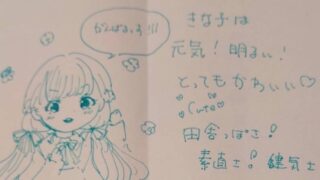 がんばるっす!!!
きな子は
元気! 明るい!
とってもかわいい♡
Cute
田舎っぽさ!
素直さ! 健気さ